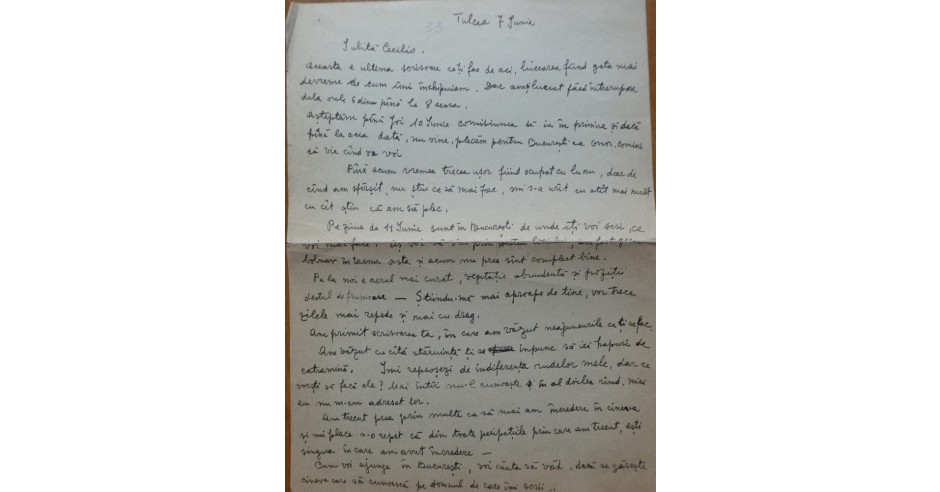 33
Tulcea 7 Iunie
Iubită Cecilio.
Aceasta e ultima scrisoare ce-ți fac de aci, lucrarea fiind gata mai
devreme de cum îmi închipuiam. Dar am lucrat fără întrerupere
dela orele 6 dim până la 8 seara.
Așteptăm până Joi 10 Iunie comisiunea să ia în primire și dacă
până la acea dată, nu vine, plecăm pentru București ca onor. comisie
să vie când va voi
Până acum vremea trecea ușor fiind ocupat cu lucru, dar de
când am sfârșit, nu știu ce să mai fac, mi s-a urât cu atât mai mult
cu cât știu că am să plec.
Pe ziua de 11 Iunie sunt în București de unde îți voi scri, ce
voi mai face.
bolnav în iarna asta și acum nu prea sînt complect bine.
Pe la noi e aerul mai curat, vegetație abundentă și poziții
destul de frumoase — Știindu-mă mai aproape de tine, vor trece
zilele mai repede și mai cu drag.
Am primit scrisoarea ta, în care am văzut neajunsurile ce ți se fac.
Am văzut cu câtă stăruință ți se impune să iei hapuri de
catramină. Îmi reproșezi de indiferența rudelor mele, dar ce
vrei să facă ele? Mai întâi nu-l cunoaște și în al doilea rând, nici
eu nu m-am adresat lor.
Am trecut prea prin multe ca să mai am încredere în cineva
și-mi place s-o repet că din toate peripețiile prin care am trecut, ești
singura în care am avut încredere —
Cum voi ajunge în București, voi căuta să văd, dacă se găsește
cineva care să cunoască pe Domnul de care îmi scrii..